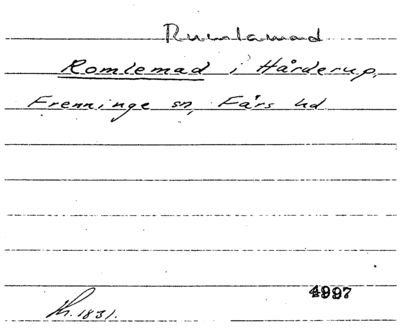 Rumlamad
Romlemad i Hårderup,
Frenninge sn, Färs hd
4997
Th. 1831.